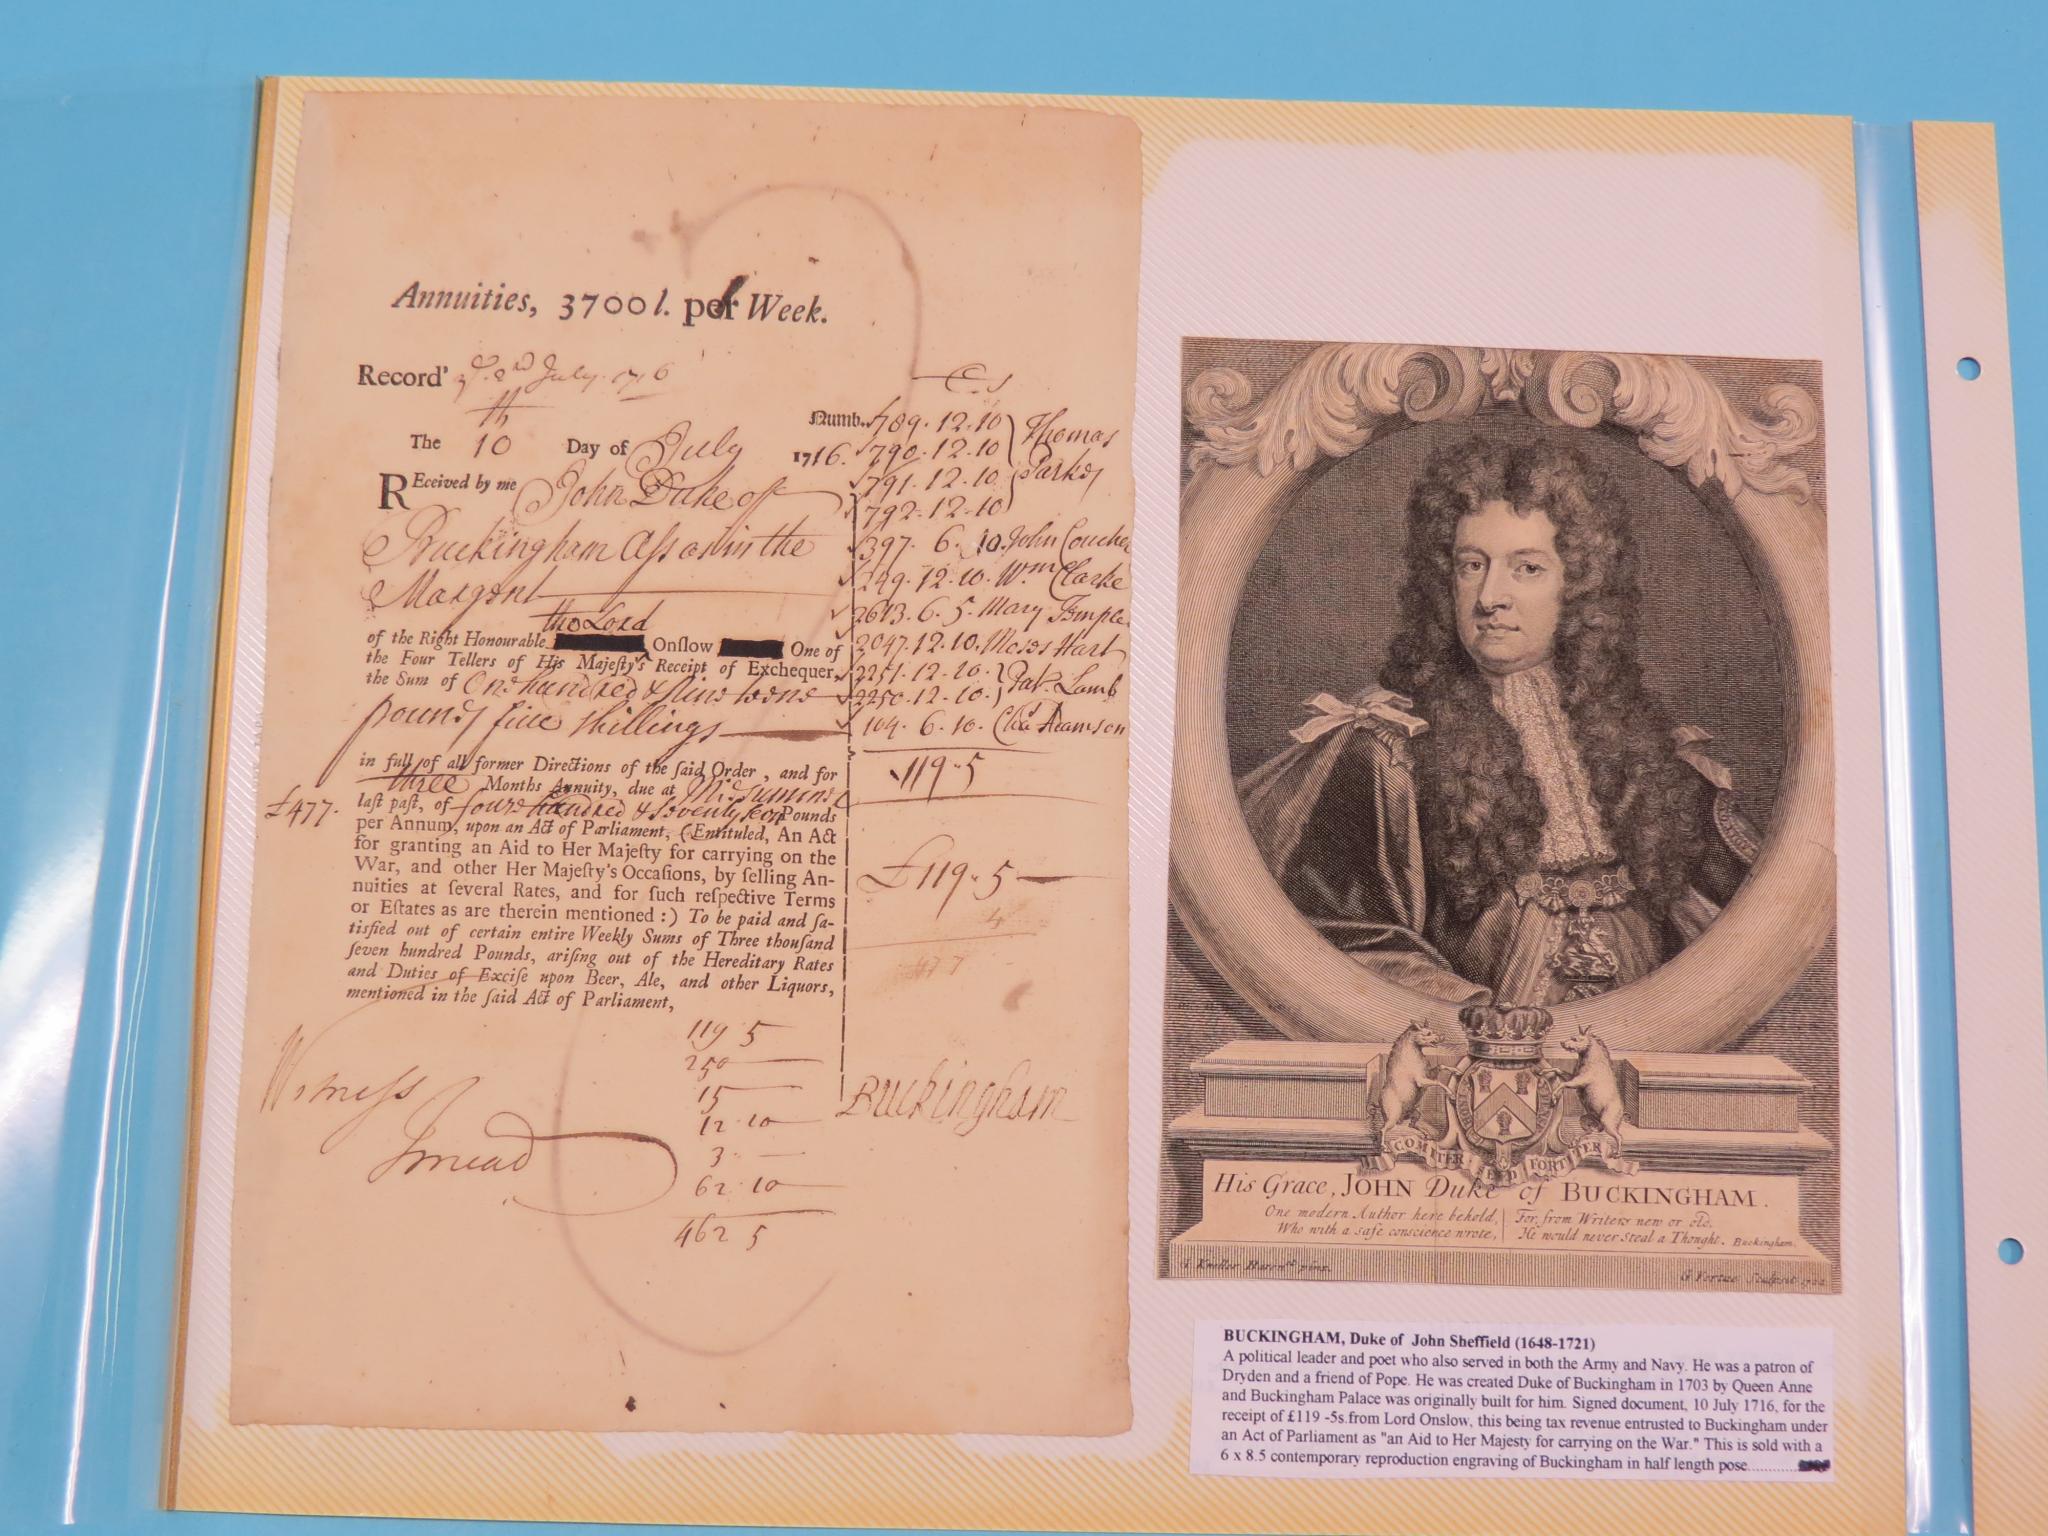 Annuities, 3700 l. per Week.
Record' 2nd July 1716
The 10th Day of July 1716.
REceived by me John Duke of
Buckingham Ass as in the
Margent
the Lord
of the Right Honourable Onſlow One of
the Four Tellers of His Majeſty's Receipt of Exchequer,
the Sum of One hundred & Nineteene
pounds five shillings
in full of all former Directions of the ſaid Order, and for
three Months Annuity, due at Midsummer
£477. laſt paſt, of four hundred & seventy seven Pounds
per Annum, upon an Act of Parliament, (Entituled, An Act
for granting an Aid to Her Majeſty for carrying on the
War, and other Her Majeſty's Occaſions, by ſelling An-
nuities at ſeveral Rates, and for ſuch reſpective Terms
or Eſtates as are therein mentioned :) To be paid and ſa-
tisfied out of certain entire Weekly Sums of Three thouſand
ſeven hundred Pounds, ariſing out of the Hereditary Rates
and Duties of Exciſe upon Beer, Ale, and other Liquors,
mentioned in the ſaid Act of Parliament,
£ s
Numb. 789. 12. 10 Thomas
790. 12. 10
791. 12. 10 Parkes
792. 12. 10
397. 6. 10. John Coucher
249. 12. 10. Wm Clarke
2613. 6. 5. Mary Temple
2047. 12. 10. Moses Hart
2251. 12. 10. Pat. Lamb
2250. 12. 10.
104. 6. 10. Cha Adamson
119. 5
£119. 5
4
477
119 5
250
15
12. 10
3
62. 10
462 5
Witness
Jmead
Buckingham
COMITER SED FORTITER
His Grace, JOHN Duke of BUCKINGHAM.
One modern Author here behold, For, from Writers new or old,
Who with a safe conscience wrote, He would never Steal a Thought. Buckingham.
G. Kneller Baronet pinx.
G Vertue Sculpsit
BUCKINGHAM, Duke of John Sheffield (1648-1721)
A political leader and poet who also served in both the Army and Navy. He was a patron of
Dryden and a friend of Pope. He was created Duke of Buckingham in 1703 by Queen Anne
and Buckingham Palace was originally built for him. Signed document, 10 July 1716, for the
receipt of £119 -5s.from Lord Onslow, this being tax revenue entrusted to Buckingham under
an Act of Parliament as "an Aid to Her Majesty for carrying on the War." This is sold with a
6 x 8.5 contemporary reproduction engraving of Buckingham in half length pose............